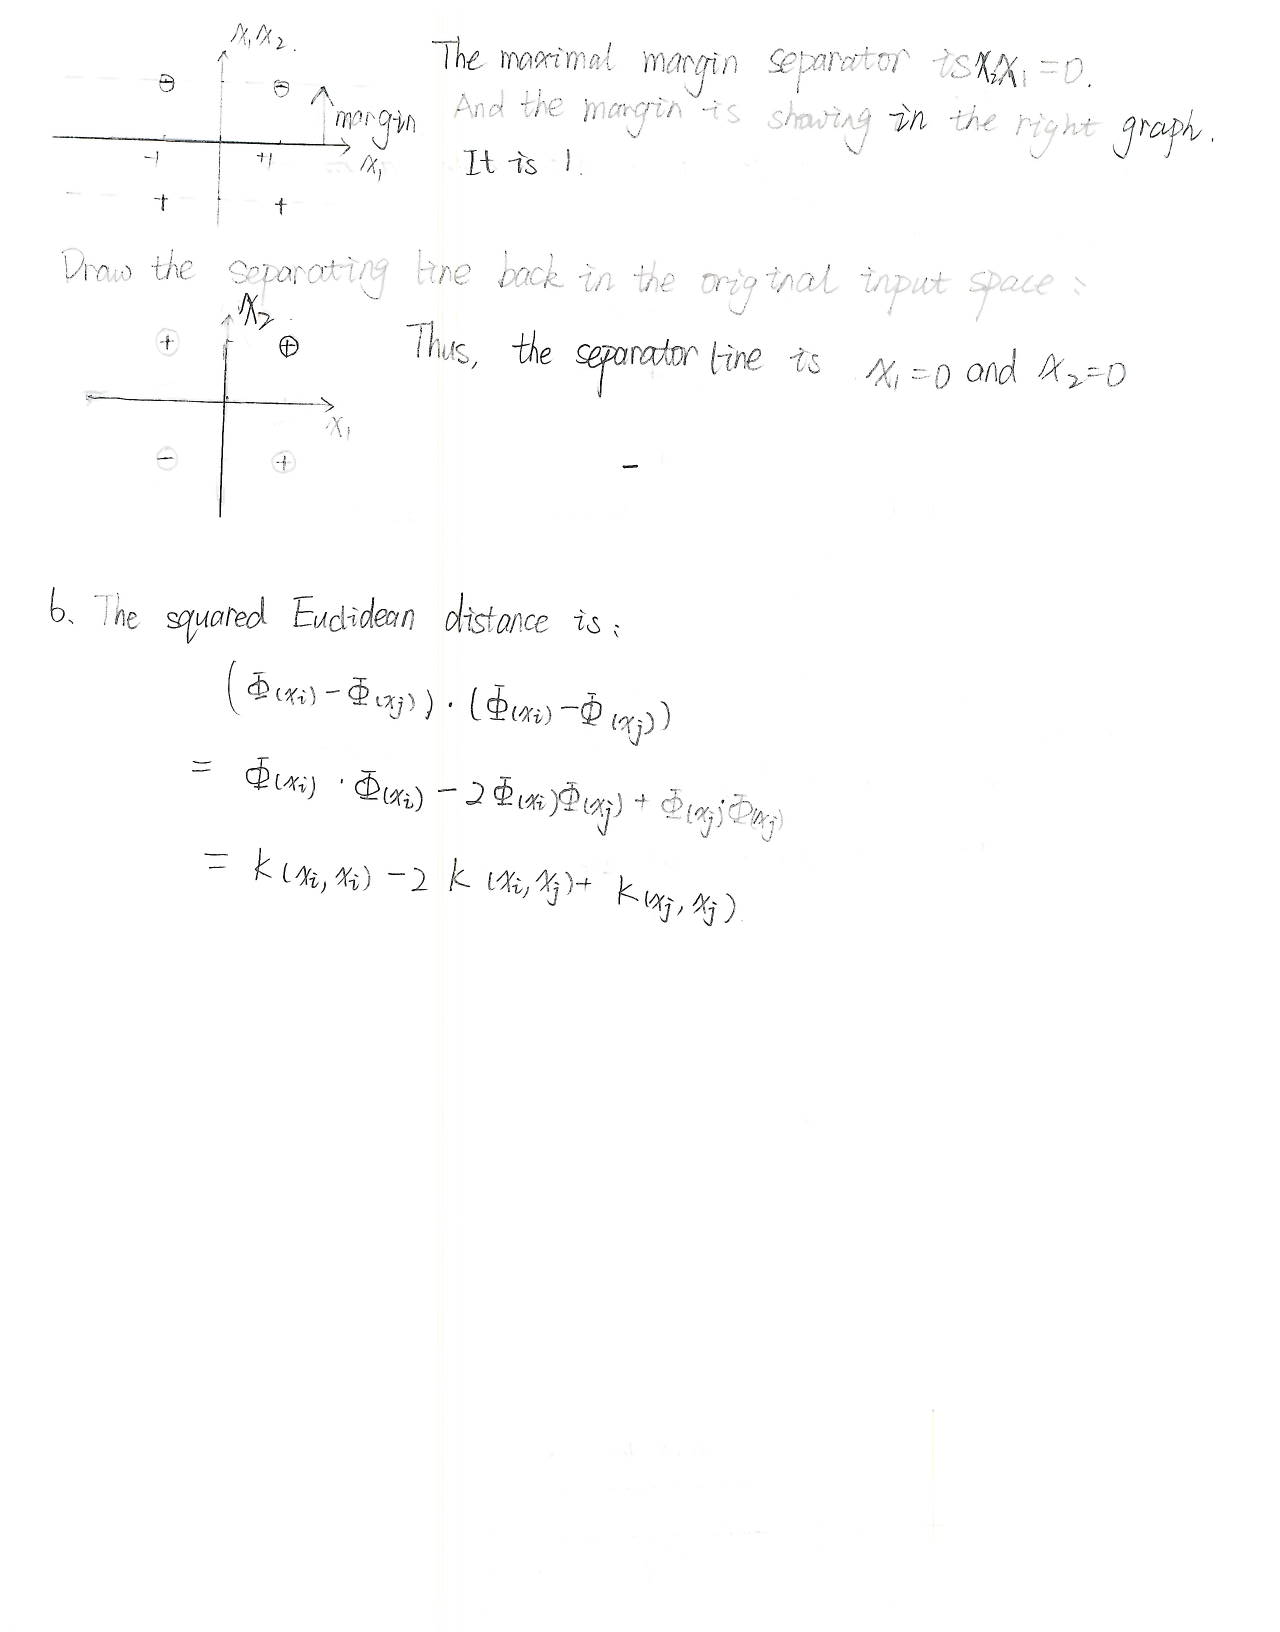 x₁x₂
The maximal margin separator is x₂x₁ = 0.
⊖ ⊖
margin
And the margin is showing in the right graph.
-1 +1 x₁
It is 1.
+ +
Draw the separating line back in the original input space:
x₂
⊕ ⊕
Thus, the separator line is x₁=0 and x₂=0
x₁
⊖ ⊕
-
6. The squared Euclidean distance is:
(Φ(xi) - Φ(xj)) · (Φ(xi) - Φ(xj))
= Φ(xi) · Φ(xi) - 2Φ(xi)Φ(xj) + Φ(xj)·Φ(xj)
= K(xi, xi) - 2 K (xi, xj) + K(xj, xj)